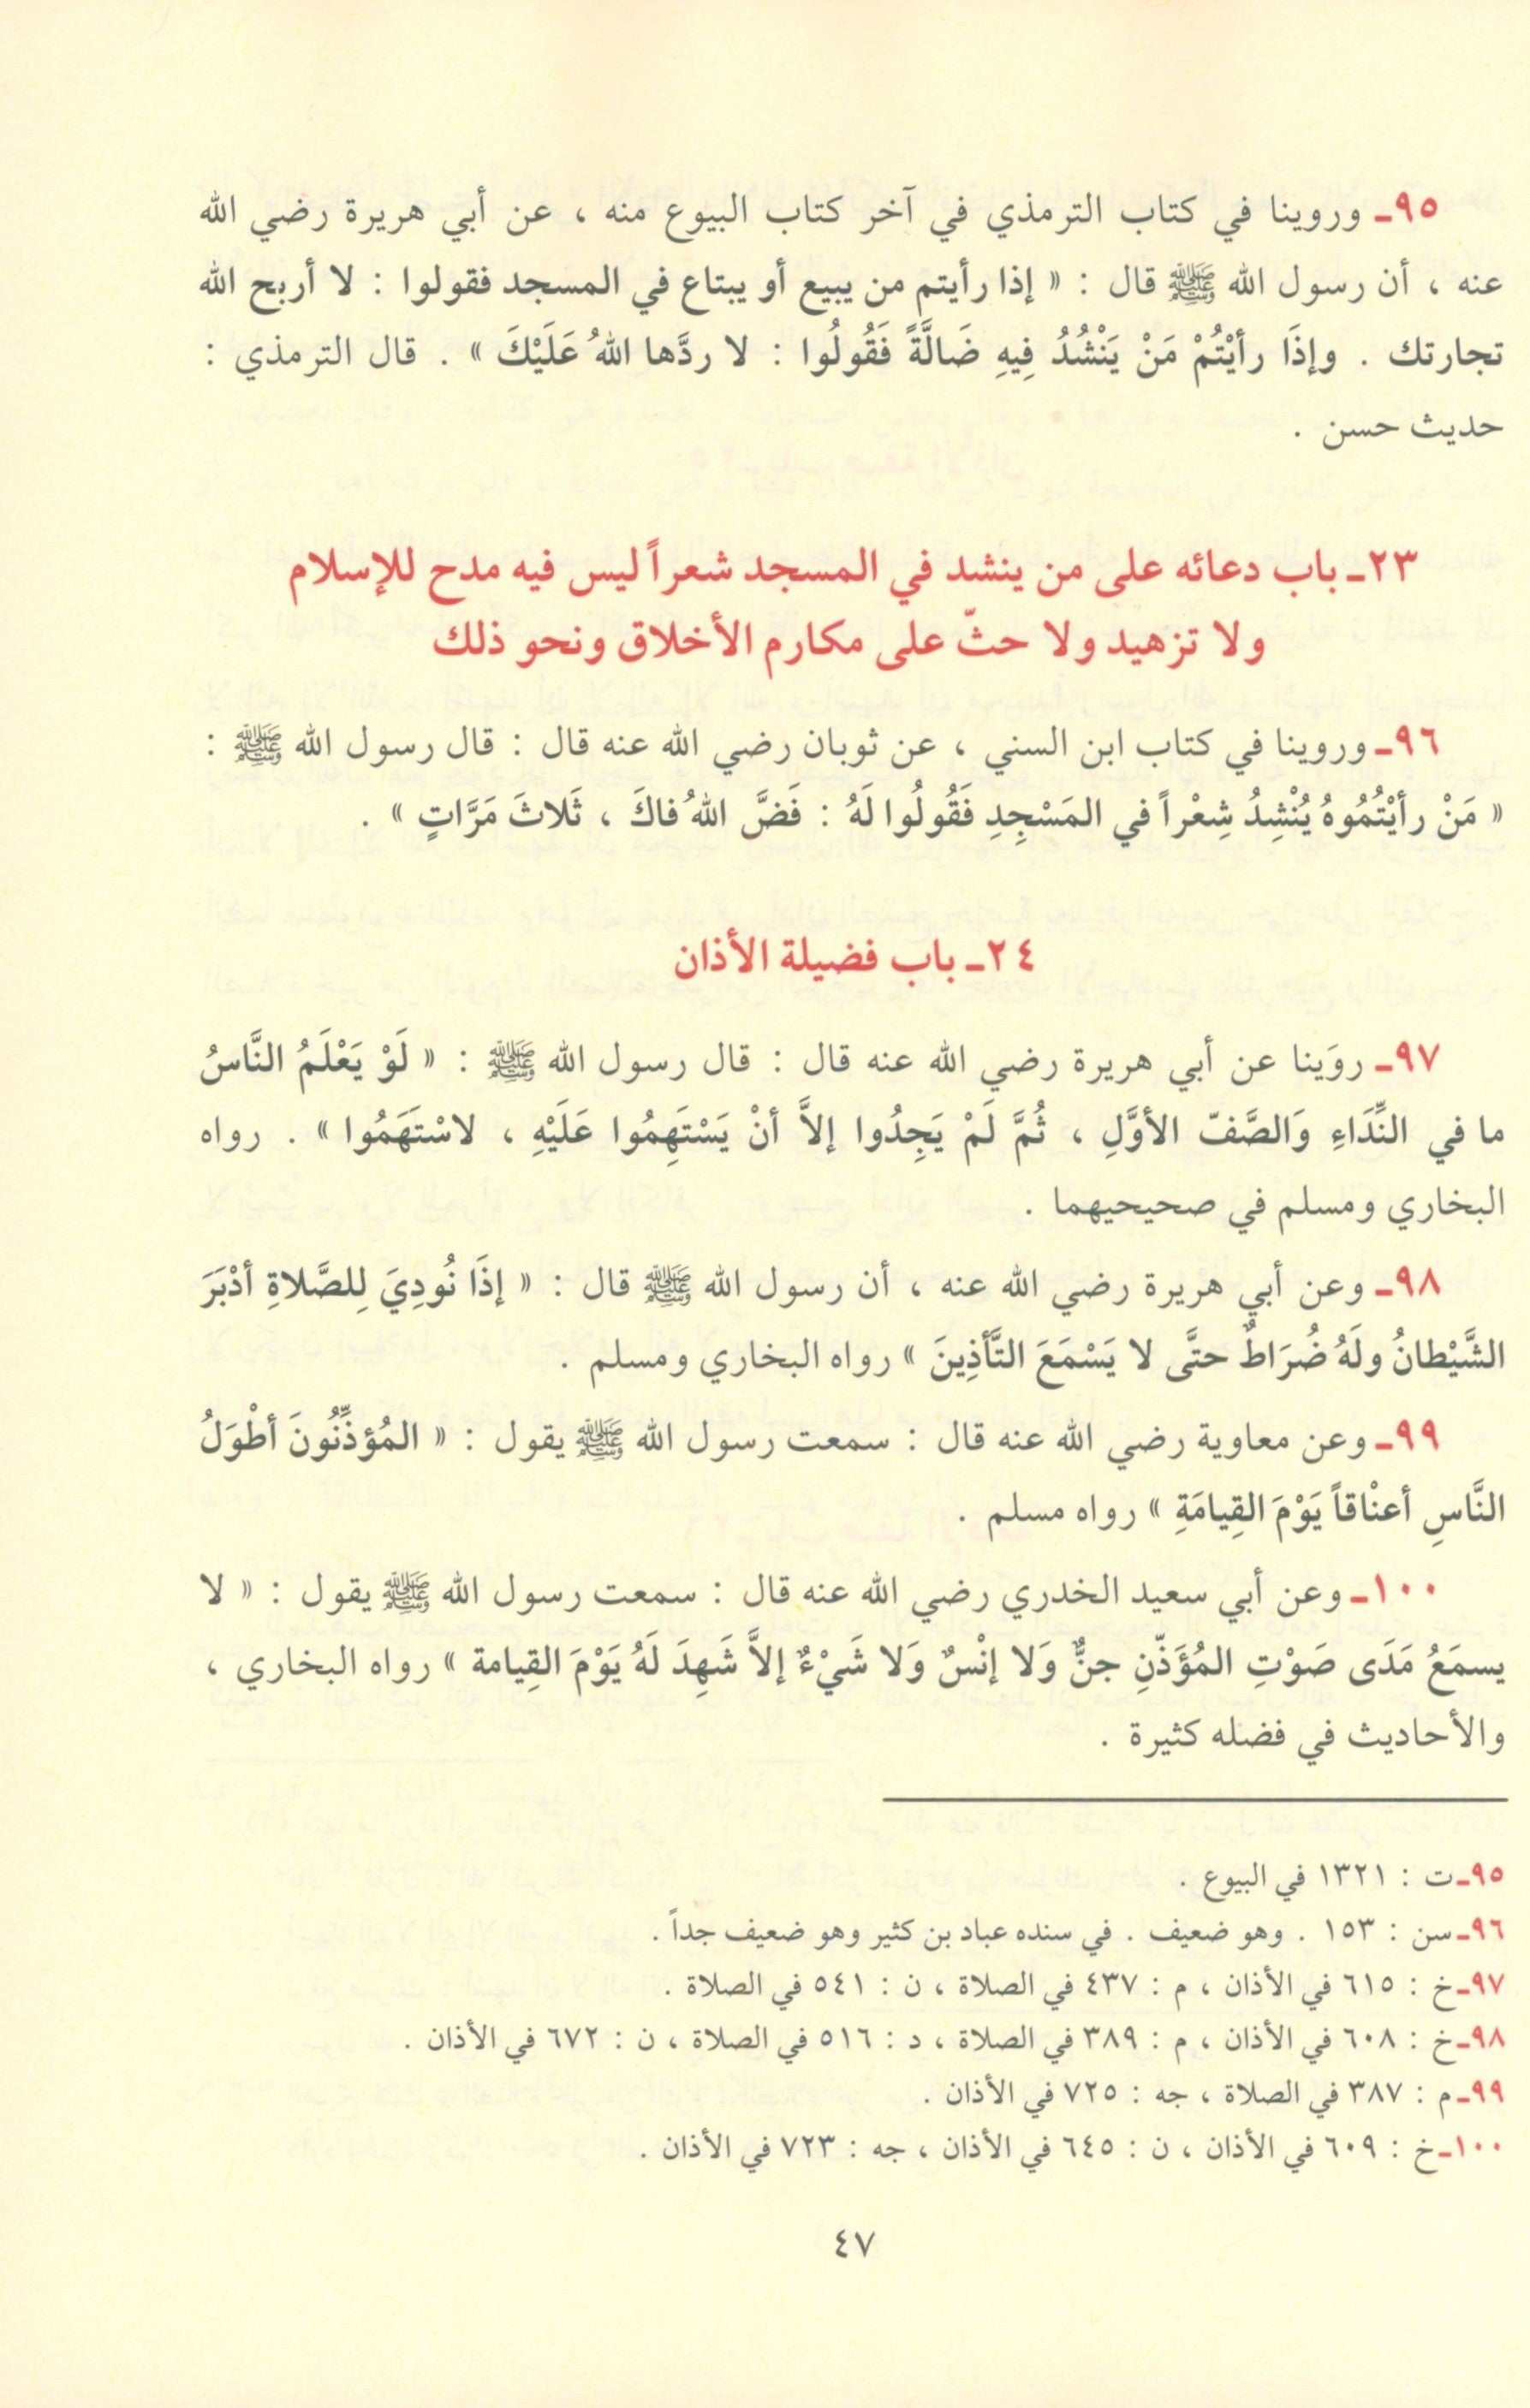 ٩٥ـ وروينا في كتاب الترمذي في آخر كتاب البيوع منه ، عن أبي هريرة رضي الله
عنه ، أن رسول الله ﷺ قال : « إذا رأيتم من يبيع أو يبتاع في المسجد فقولوا : لا أربح الله
تجارتك . وإذَا رأيْتُمْ مَنْ يَنْشُدُ فِيهِ ضَالَّةً فَقُولُوا : لا ردَّها اللهُ عَلَيْكَ » . قال الترمذي :
حديث حسن .
٢٣ـ باب دعائه على من ينشد في المسجد شعراً ليس فيه مدح للإسلام
ولا تزهيد ولا حثّ على مكارم الأخلاق ونحو ذلك
٩٦ـ وروينا في كتاب ابن السني ، عن ثوبان رضي الله عنه قال : قال رسول الله ﷺ :
« مَنْ رأيْتُمُوهُ يُنْشِدُ شِعْراً في المَسْجِدِ فَقُولُوا لَهُ : فَضَّ اللهُ فاكَ ، ثَلاثَ مَرَّاتٍ » .
٢٤ـ باب فضيلة الأذان
٩٧ـ روَينا عن أبي هريرة رضي الله عنه قال : قال رسول الله ﷺ : « لَوْ يَعْلَمُ النَّاسُ
ما في النِّدَاءِ وَالصَّفّ الأوَّلِ ، ثُمَّ لَمْ يَجِدُوا إلاَّ أنْ يَسْتَهِمُوا عَلَيْهِ ، لاسْتَهَمُوا » . رواه
البخاري ومسلم في صحيحيهما .
٩٨ـ وعن أبي هريرة رضي الله عنه ، أن رسول الله ﷺ قال : « إذَا نُودِيَ لِلصَّلاةِ أدْبَرَ
الشَّيْطانُ ولَهُ ضُرَاطٌ حتَّى لا يَسْمَعَ التَّأذِينَ » رواه البخاري ومسلم .
٩٩ـ وعن معاوية رضي الله عنه قال : سمعت رسول الله ﷺ يقول : « المُؤذِّنُونَ أطْوَلُ
النَّاسِ أعنْاقاً يَوْمَ القِيامَةِ » رواه مسلم .
١٠٠ـ وعن أبي سعيد الخدري رضي الله عنه قال : سمعت رسول الله ﷺ يقول : « لا
يسمَعُ مَدَى صَوْتِ المُؤَذّنِ جنٌّ وَلا إنْسٌ وَلا شَيْءٌ إلاَّ شَهِدَ لَهُ يَوْمَ القِيامة » رواه البخاري ،
والأحاديث في فضله كثيرة .
٩٥ـ ت : ١٣٢١ في البيوع .
٩٦ـ سن : ١٥٣ . وهو ضعيف . في سنده عباد بن كثير وهو ضعيف جداً .
٩٧ـ خ : ٦١٥ في الأذان ، م : ٤٣٧ في الصلاة ، ن : ٥٤١ في الصلاة .
٩٨ـ خ : ٦٠٨ في الأذان ، م : ٣٨٩ في الصلاة ، د : ٥١٦ في الصلاة ، ن : ٦٧٢ في الأذان .
٩٩ـ م : ٣٨٧ في الصلاة ، جه : ٧٢٥ في الأذان .
١٠٠ـ خ : ٦٠٩ في الأذان ، ن : ٦٤٥ في الأذان ، جه : ٧٢٣ في الأذان .
٤٧